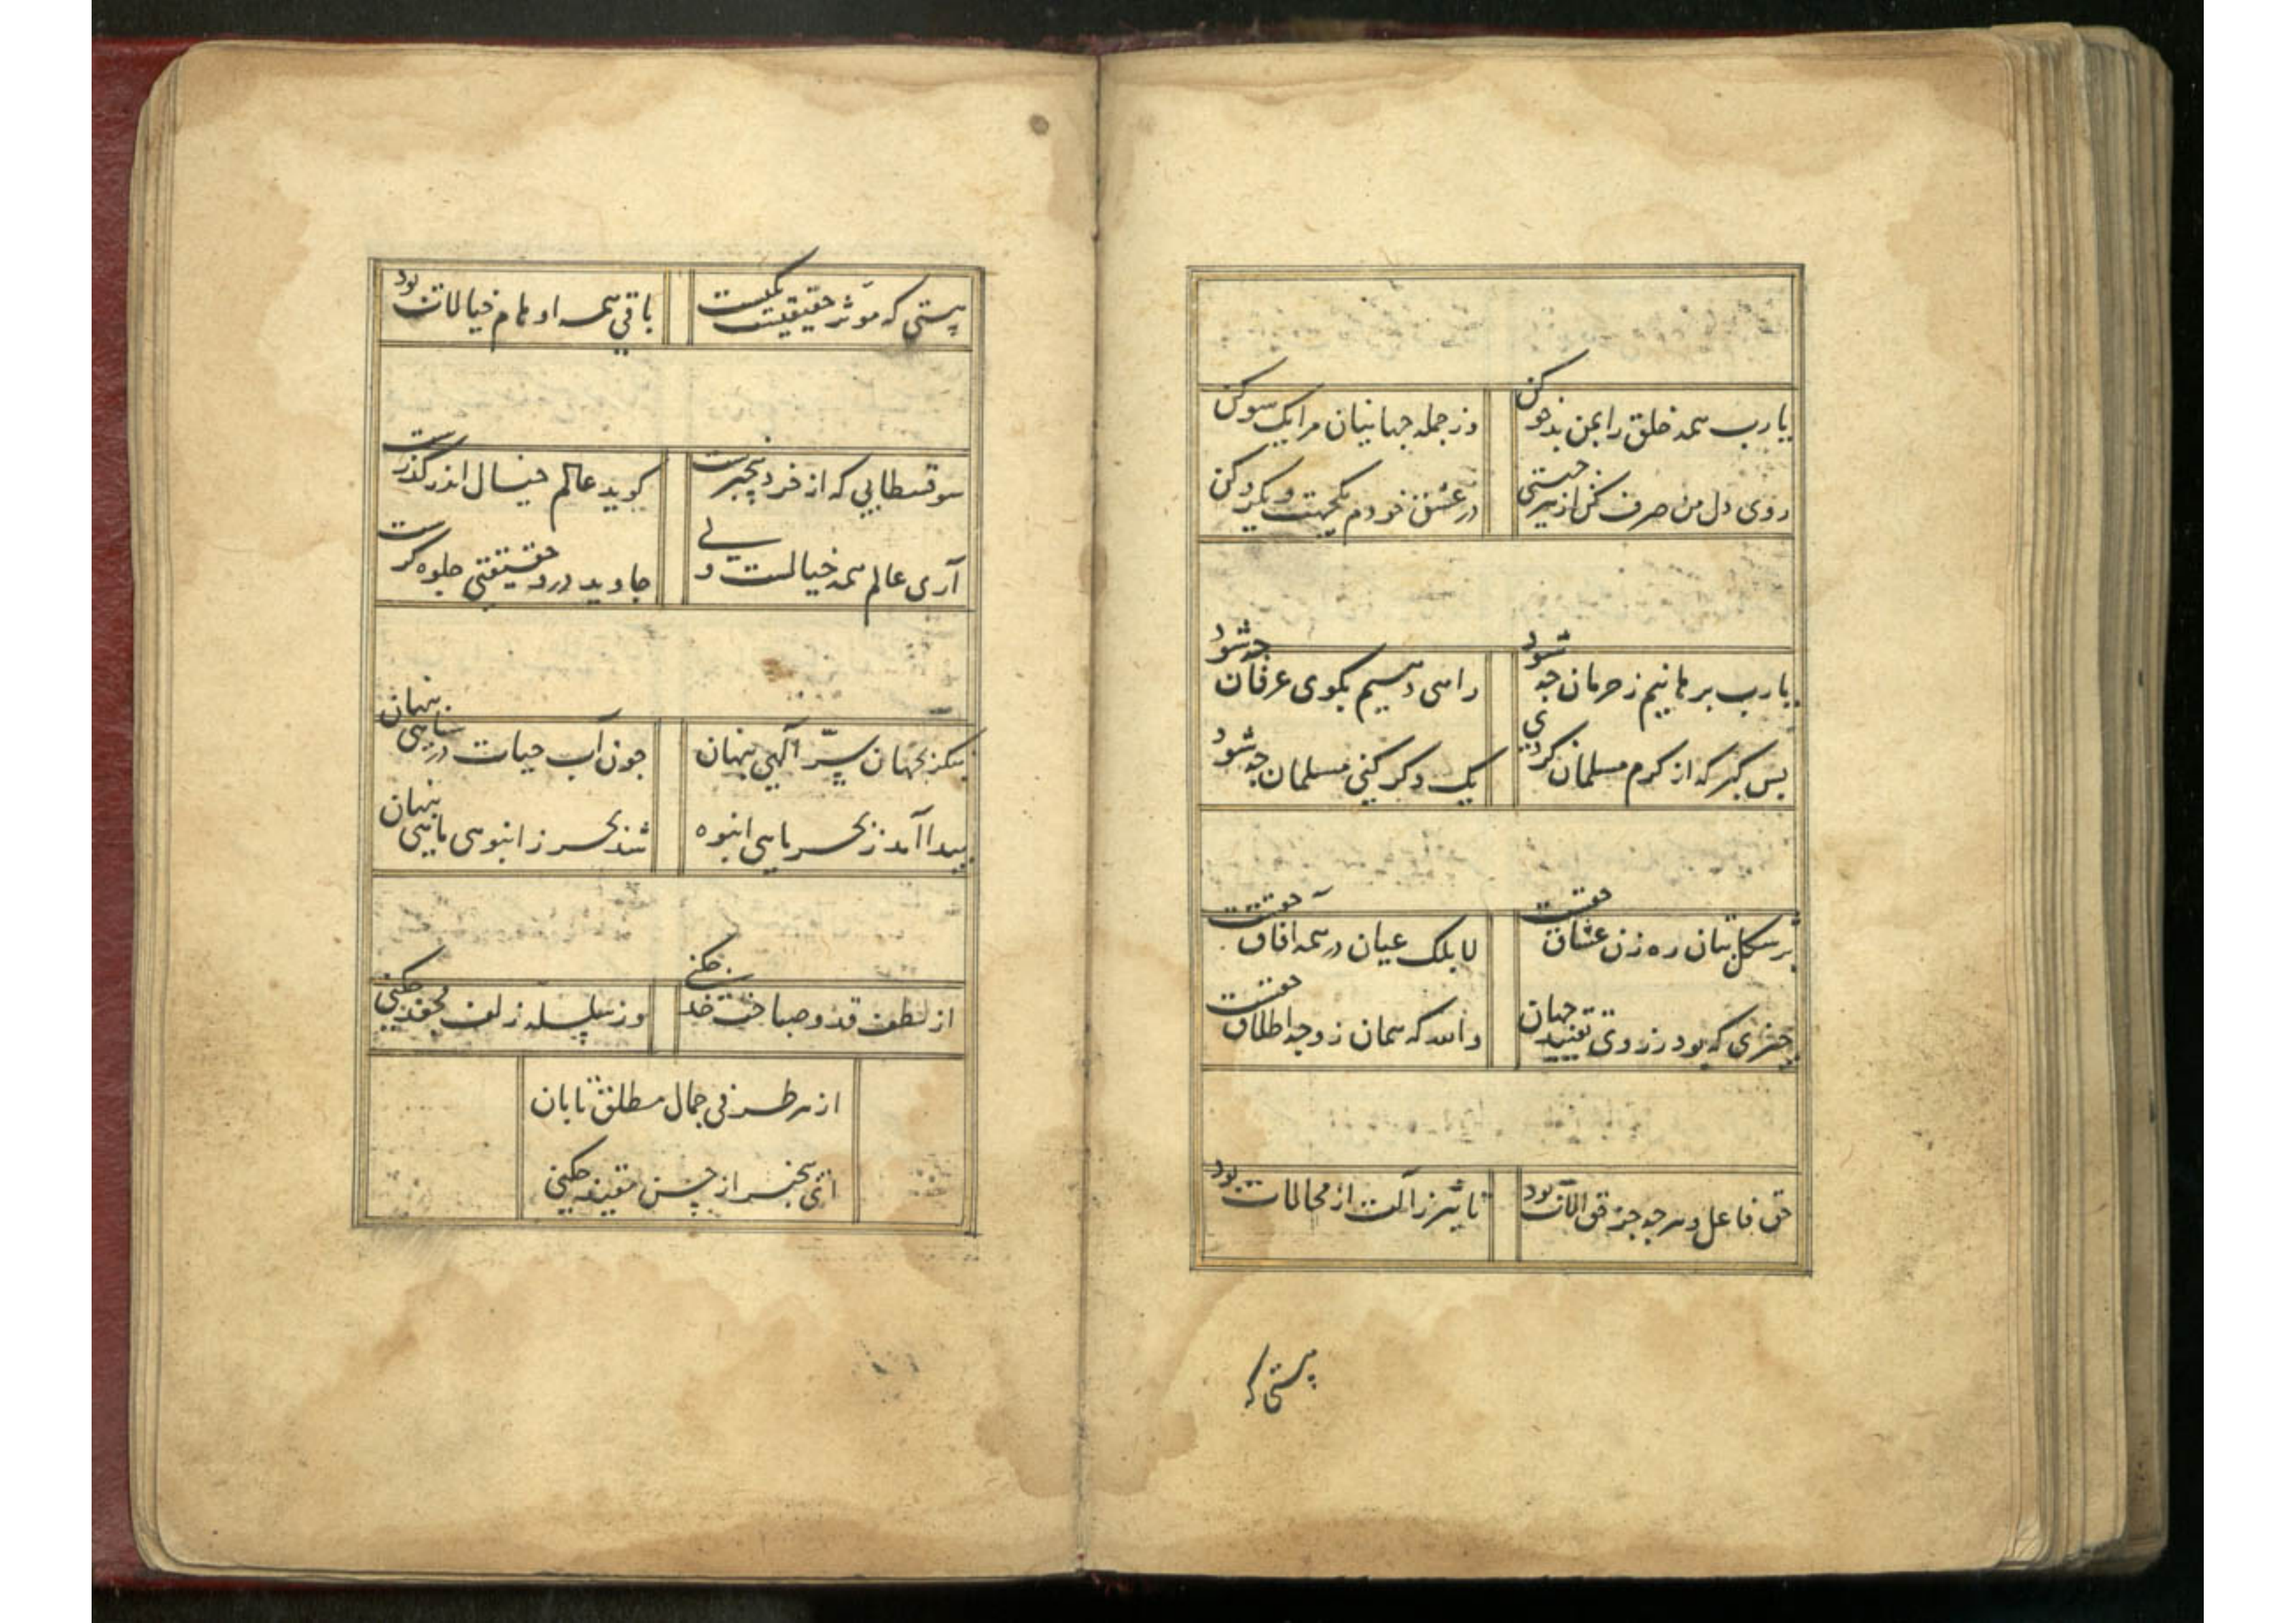 یا رب همه خلق را بمن بدخو کن
وز جمله جهانیان مرا یک سو کن
روی دل من صرف کن از هر جهتی
در عشق خودم یکجهت و یکرو کن
یا رب برهانیم ز حرمان چه شود
راهی دهیم بکوی عرفان چه شود
بس کبر که از کرم مسلمان کردی
یک دکر کنی مسلمان چه شود
بر شکل بتان ره زن عشاق حقست
لا بلکه عیان در همه آفاق حقست
چیزی که بود ز روی تقیید جهان
والله که همان ز وجه اطلاق حقست
حق فاعل و هر چه جز حق آلات بود
تاثیر ز آلت از محالات بود
هستی که
هستی که موثر حقیقیست یکیست
باقی همه اوهام خیالات بود
سوفسطایی که از خرد بیخبرست
کوید عالم خیال اندر کذرست
آری عالم همه خیالست ولی
جاوید درو حقیقتی جلوه کرست
بنکر بجهان سر الهی پنهان
چون آب حیات در سیاهی پنهان
پیدا آمد ز بحر ماهی انبوه
شد بحر ز انبوهی ماهی پنهان
از لطف قد و صباحت خد چکنی
وز سلسله زلف مجعد چکنی
از هر طرفی جمال مطلق تابان
ای بیخبر از حسن مقید چکنی